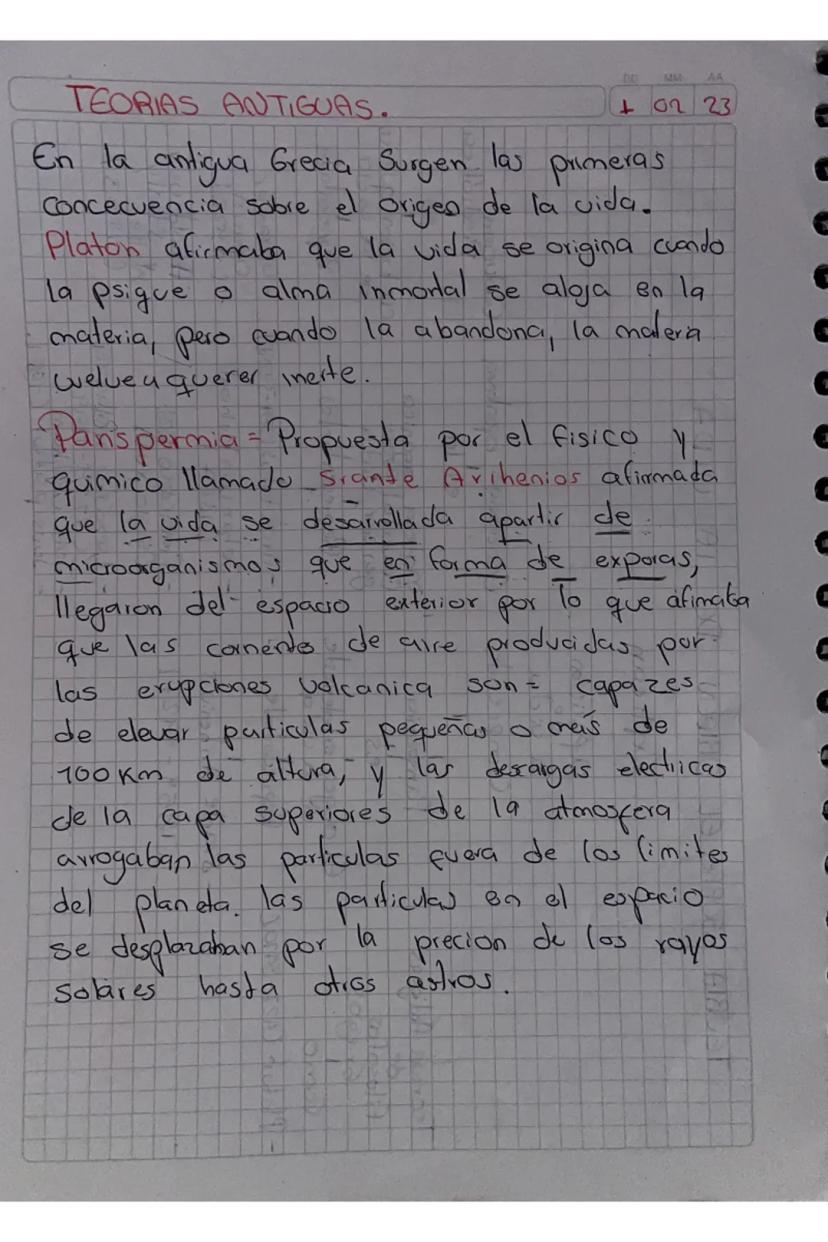 DD MM AA
TEORIAS ANTIGUAS. 1 02 23
En la antigua Grecia Surgen las primeras
concecuencia sobre el origen de la vida.
Platon afirmaba que la vida se origina cuando
la psique o alma inmortal se aloja en la
materia, pero cuando la abandona, la materia
vuelve a querer inerte.
Panspermia = Propuesta por el fisico y
quimico llamado Srante Arrhenios afirmada
que la vida se desarrollada apartir de
microorganismos que en forma de exporas,
llegaron del espacio exterior por lo que afimaba
que las corriente de aire producidas por
las erupciones volcanica son = capazes
de elevar particulas pequeñas o más de
100 Km de altura, y las descargas electricas
de la capa superiores de la atmosfera
arrogaban las particulas fuera de los limites
del planeta. las particulas en el espacio
se desplazaban por la precion de los rayos
solares hasta otros astros.